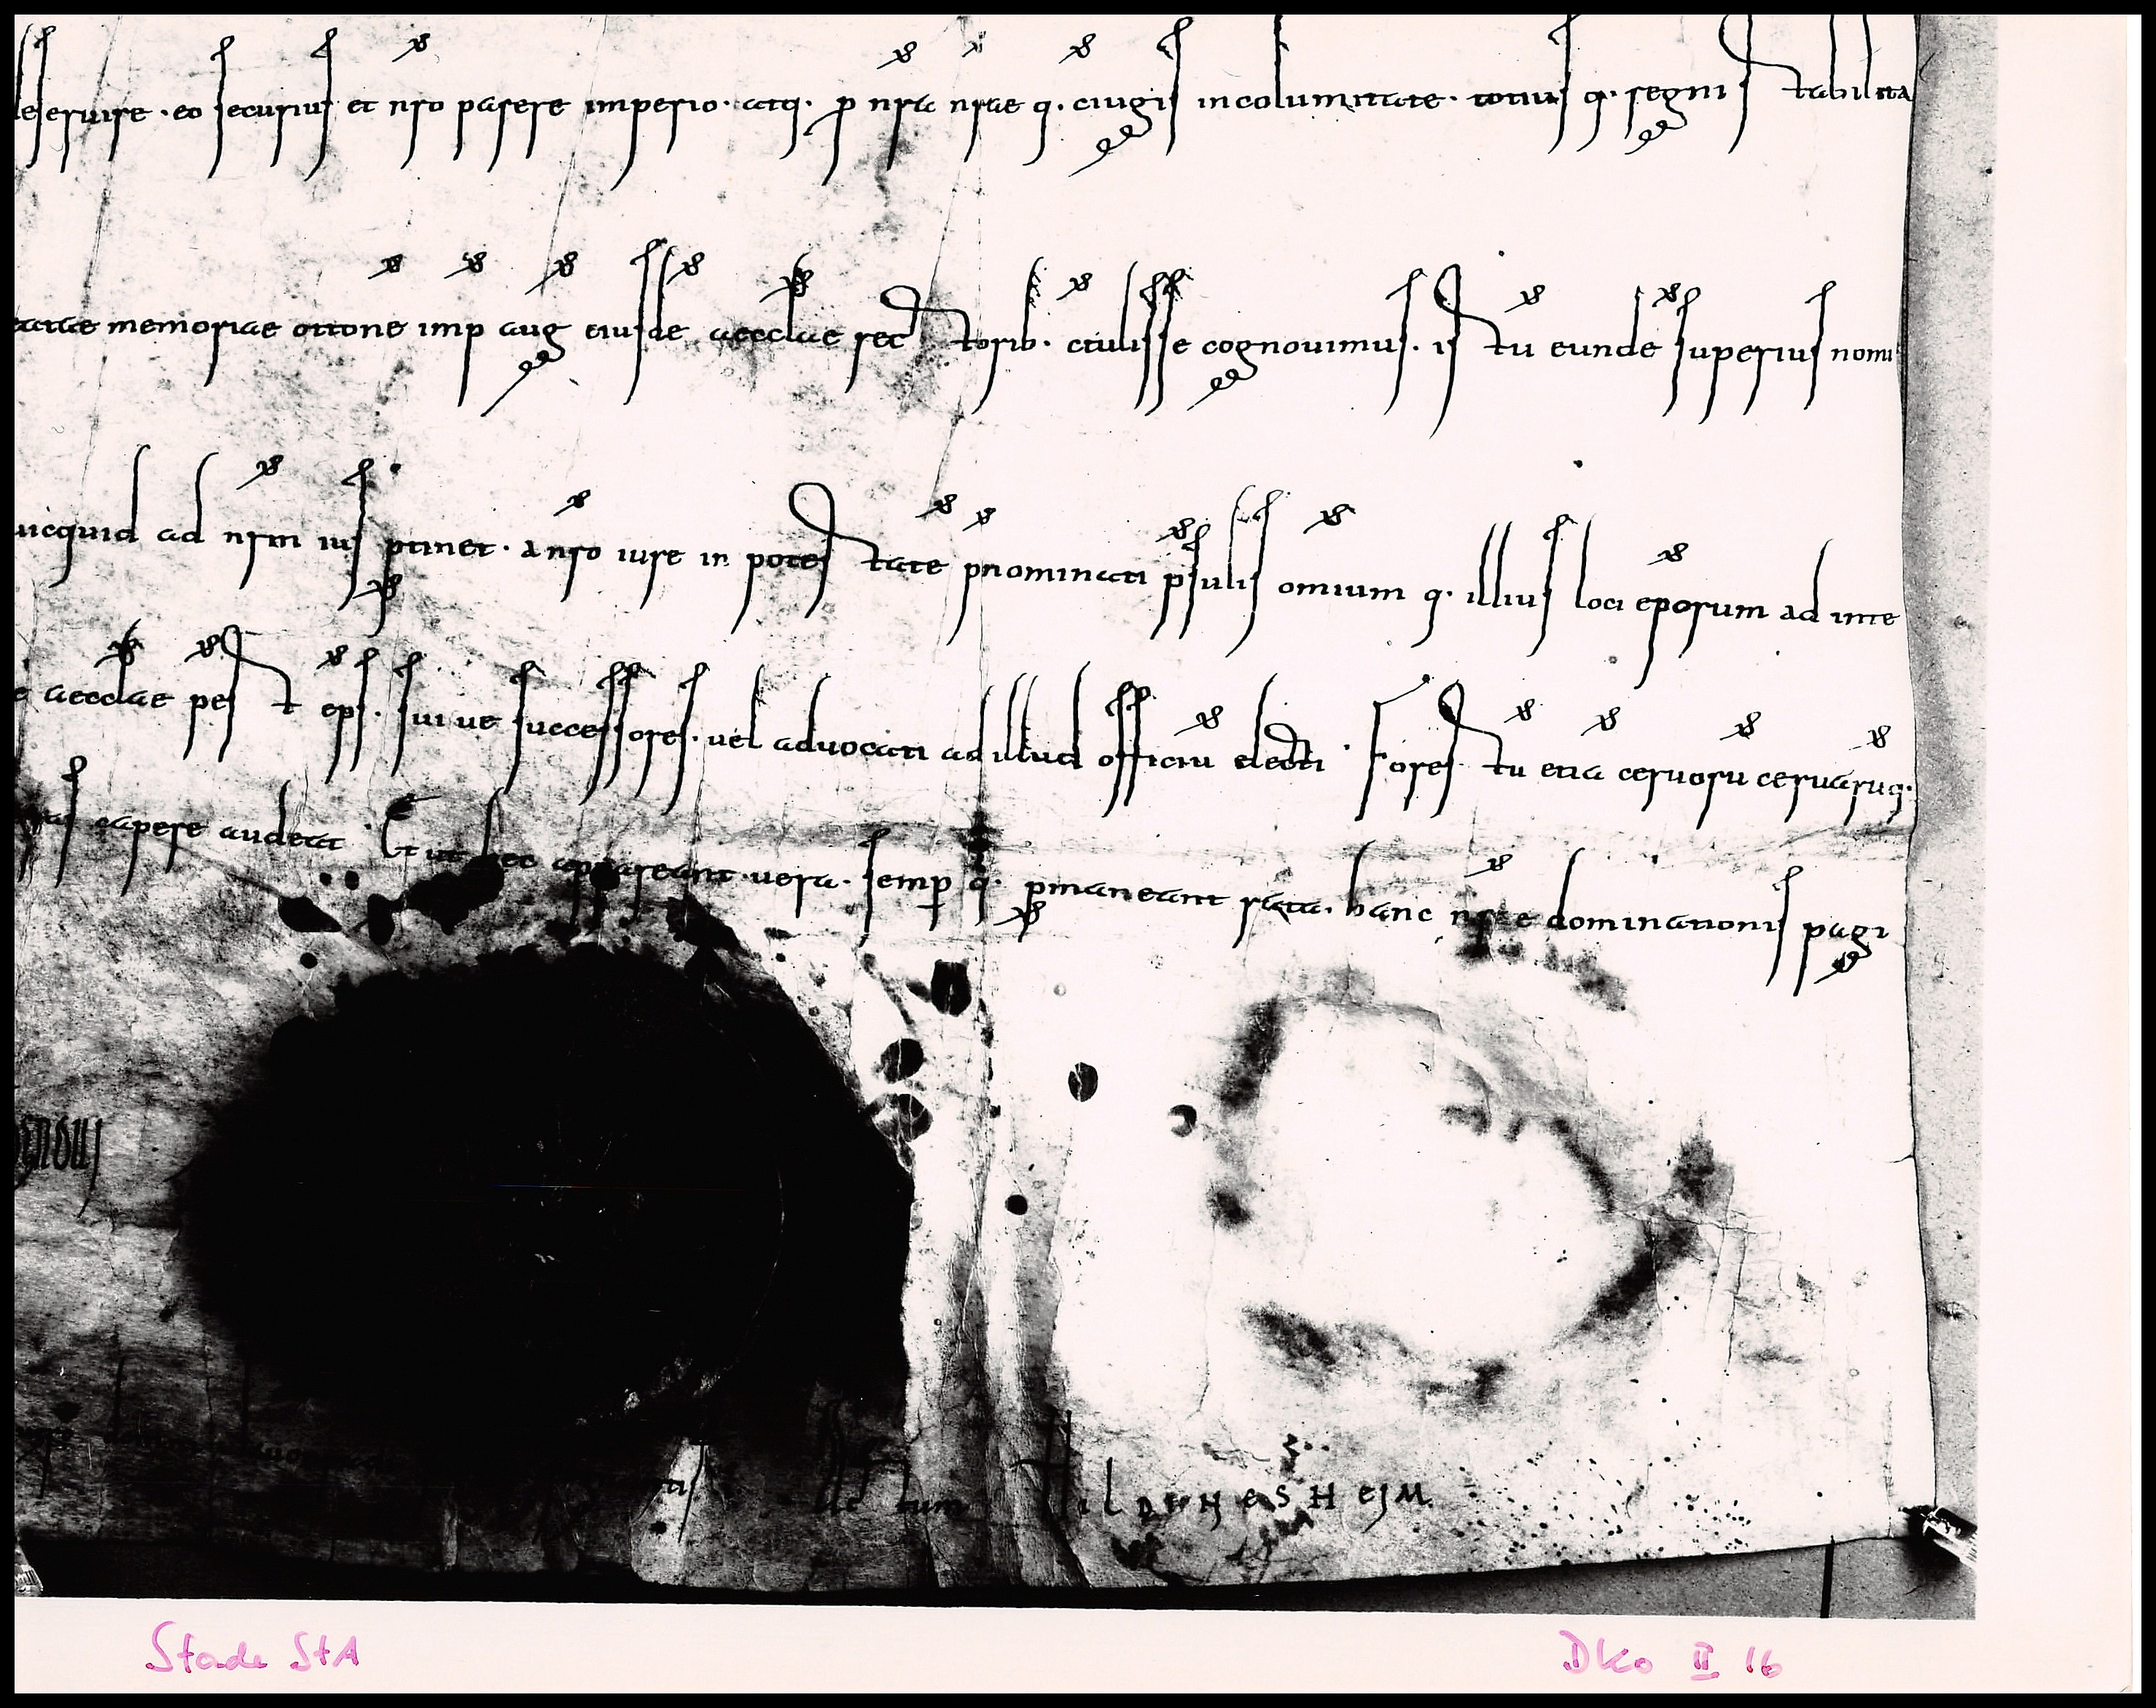 deservire · eo securius et nro parere imperio · atq · p nra nrae q · ciugis incolumitate · totius q · regni stabilita
eatae memoriae ottone imp aug eiusde aecclae rectorib · ac iulisse cognovimus · is tu eunde superius nomi
uicquid ad nrm ius ptinet · a nro iure in potestate pnominati psulis omium q · illius loci eporum ad inte
e aecclae pest eps · sui ue successores · uel aduocati ad illud officiu electi · Forestu etia ceruoru ceruaruq ·
capere audeat · Et ut hec appareant uera · semp q · pmaneant rata · hanc nrae dominationis pagi
gnoui
actum HildeNesHeiM
Stade StA
DKo II 16